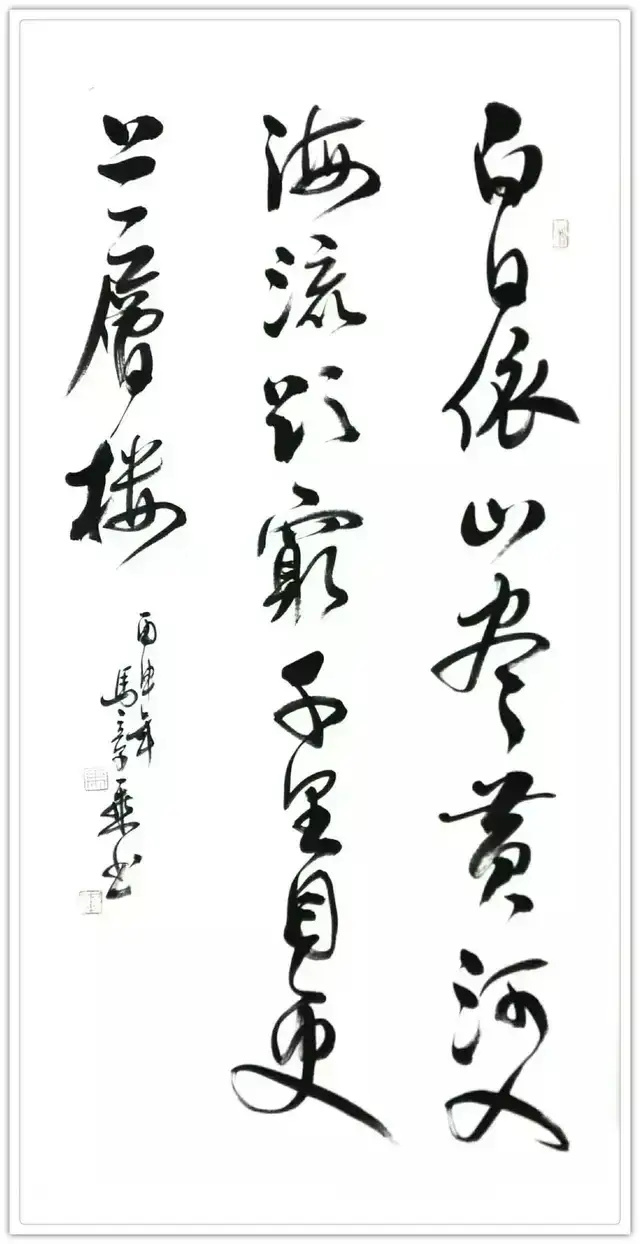 白日依山尽黄河入
海流欲窮千里目更
上一層楼
丙申年
馬章书